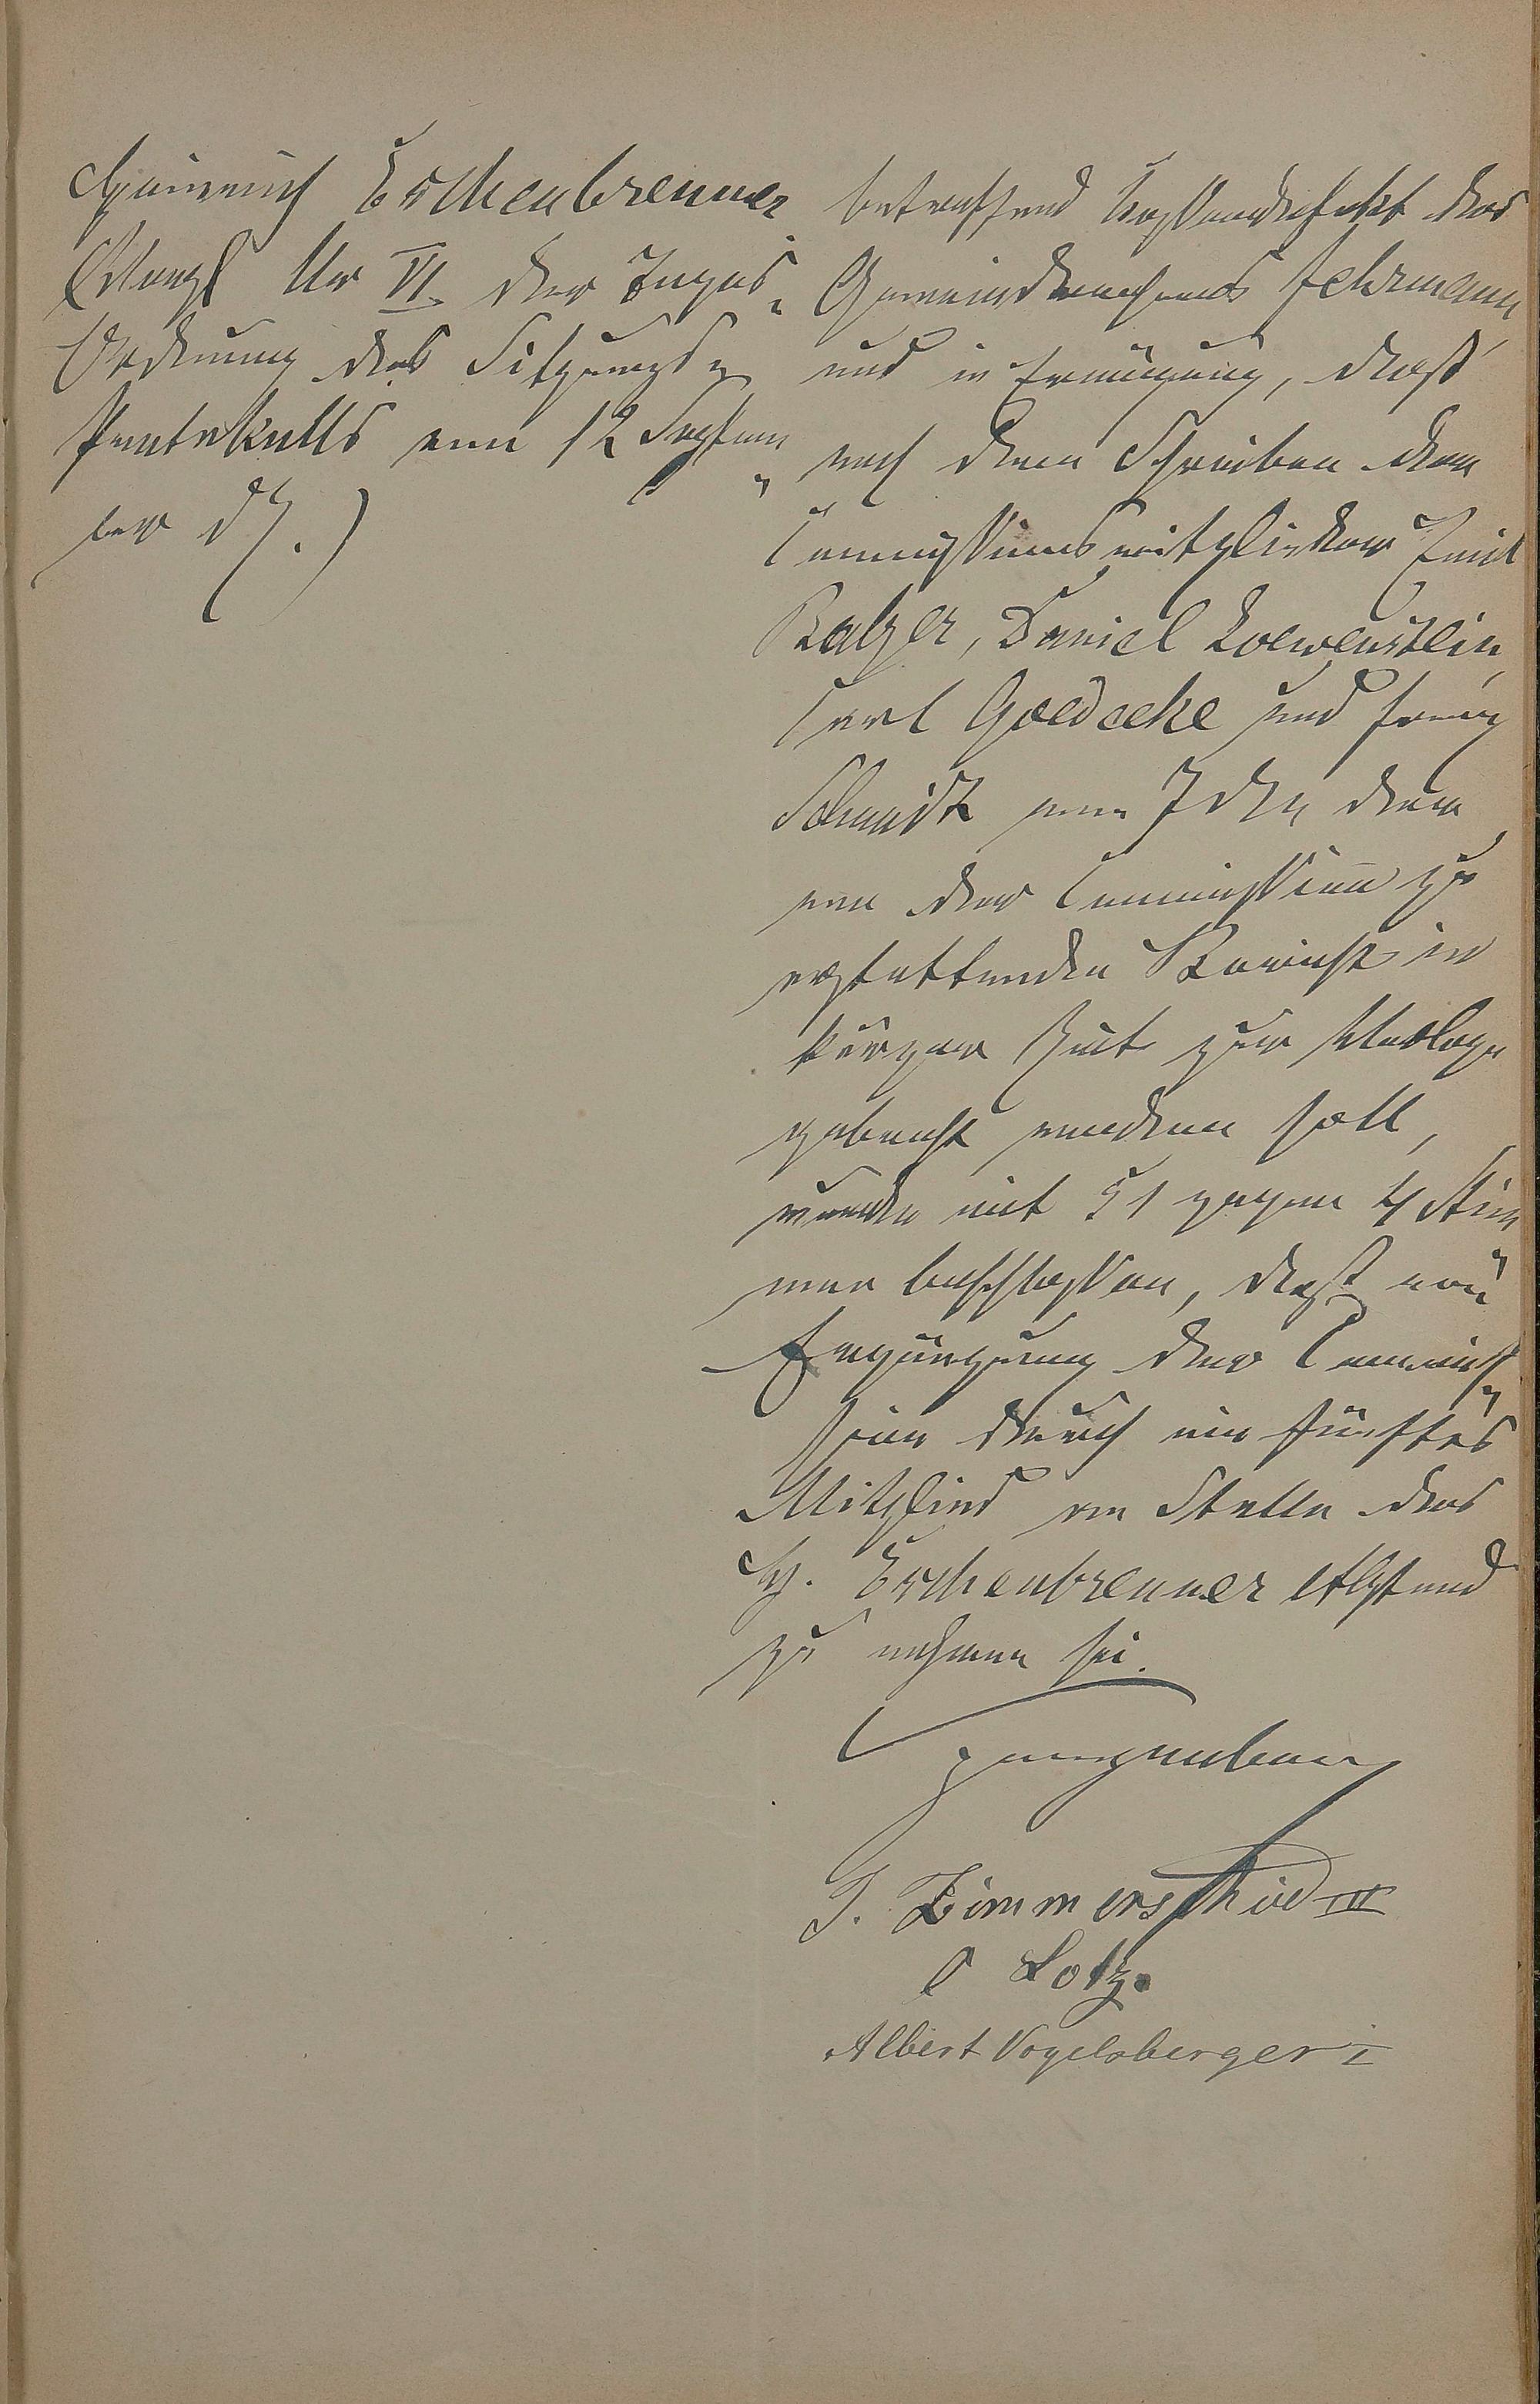 Heinrich Eschenbrenner
(Vergl. Nr VI. der Tages-
Ordnung des Sitzungs-
Protokolls vom 12 Septem-
ber ds.)
betreffend Kassendefekt des
Gemeinderechners Fehrmann,
und in Erwägung, daß
nach dem Schreiben der
Commissionsmitglieder Emil
Balzer, Daniel Loewenstein,
Carl Goedecke und Franz
Schmidt vom 7 ds der
von der Commission zu
erstattenden Bericht in
kürzer Zeit zur Vorlage
gebracht werden soll,
wurde mit 51 gegen 4 Stim
men beschlossen, daß von
Ergänzung der Commis-
sion durch ein fünftes
Mitglied an Stelle des
H. Eschenbrenner Abstand
zu nehmen sei.
J. Zimmerschied III
Lotz.
Albert Vogelsberger I